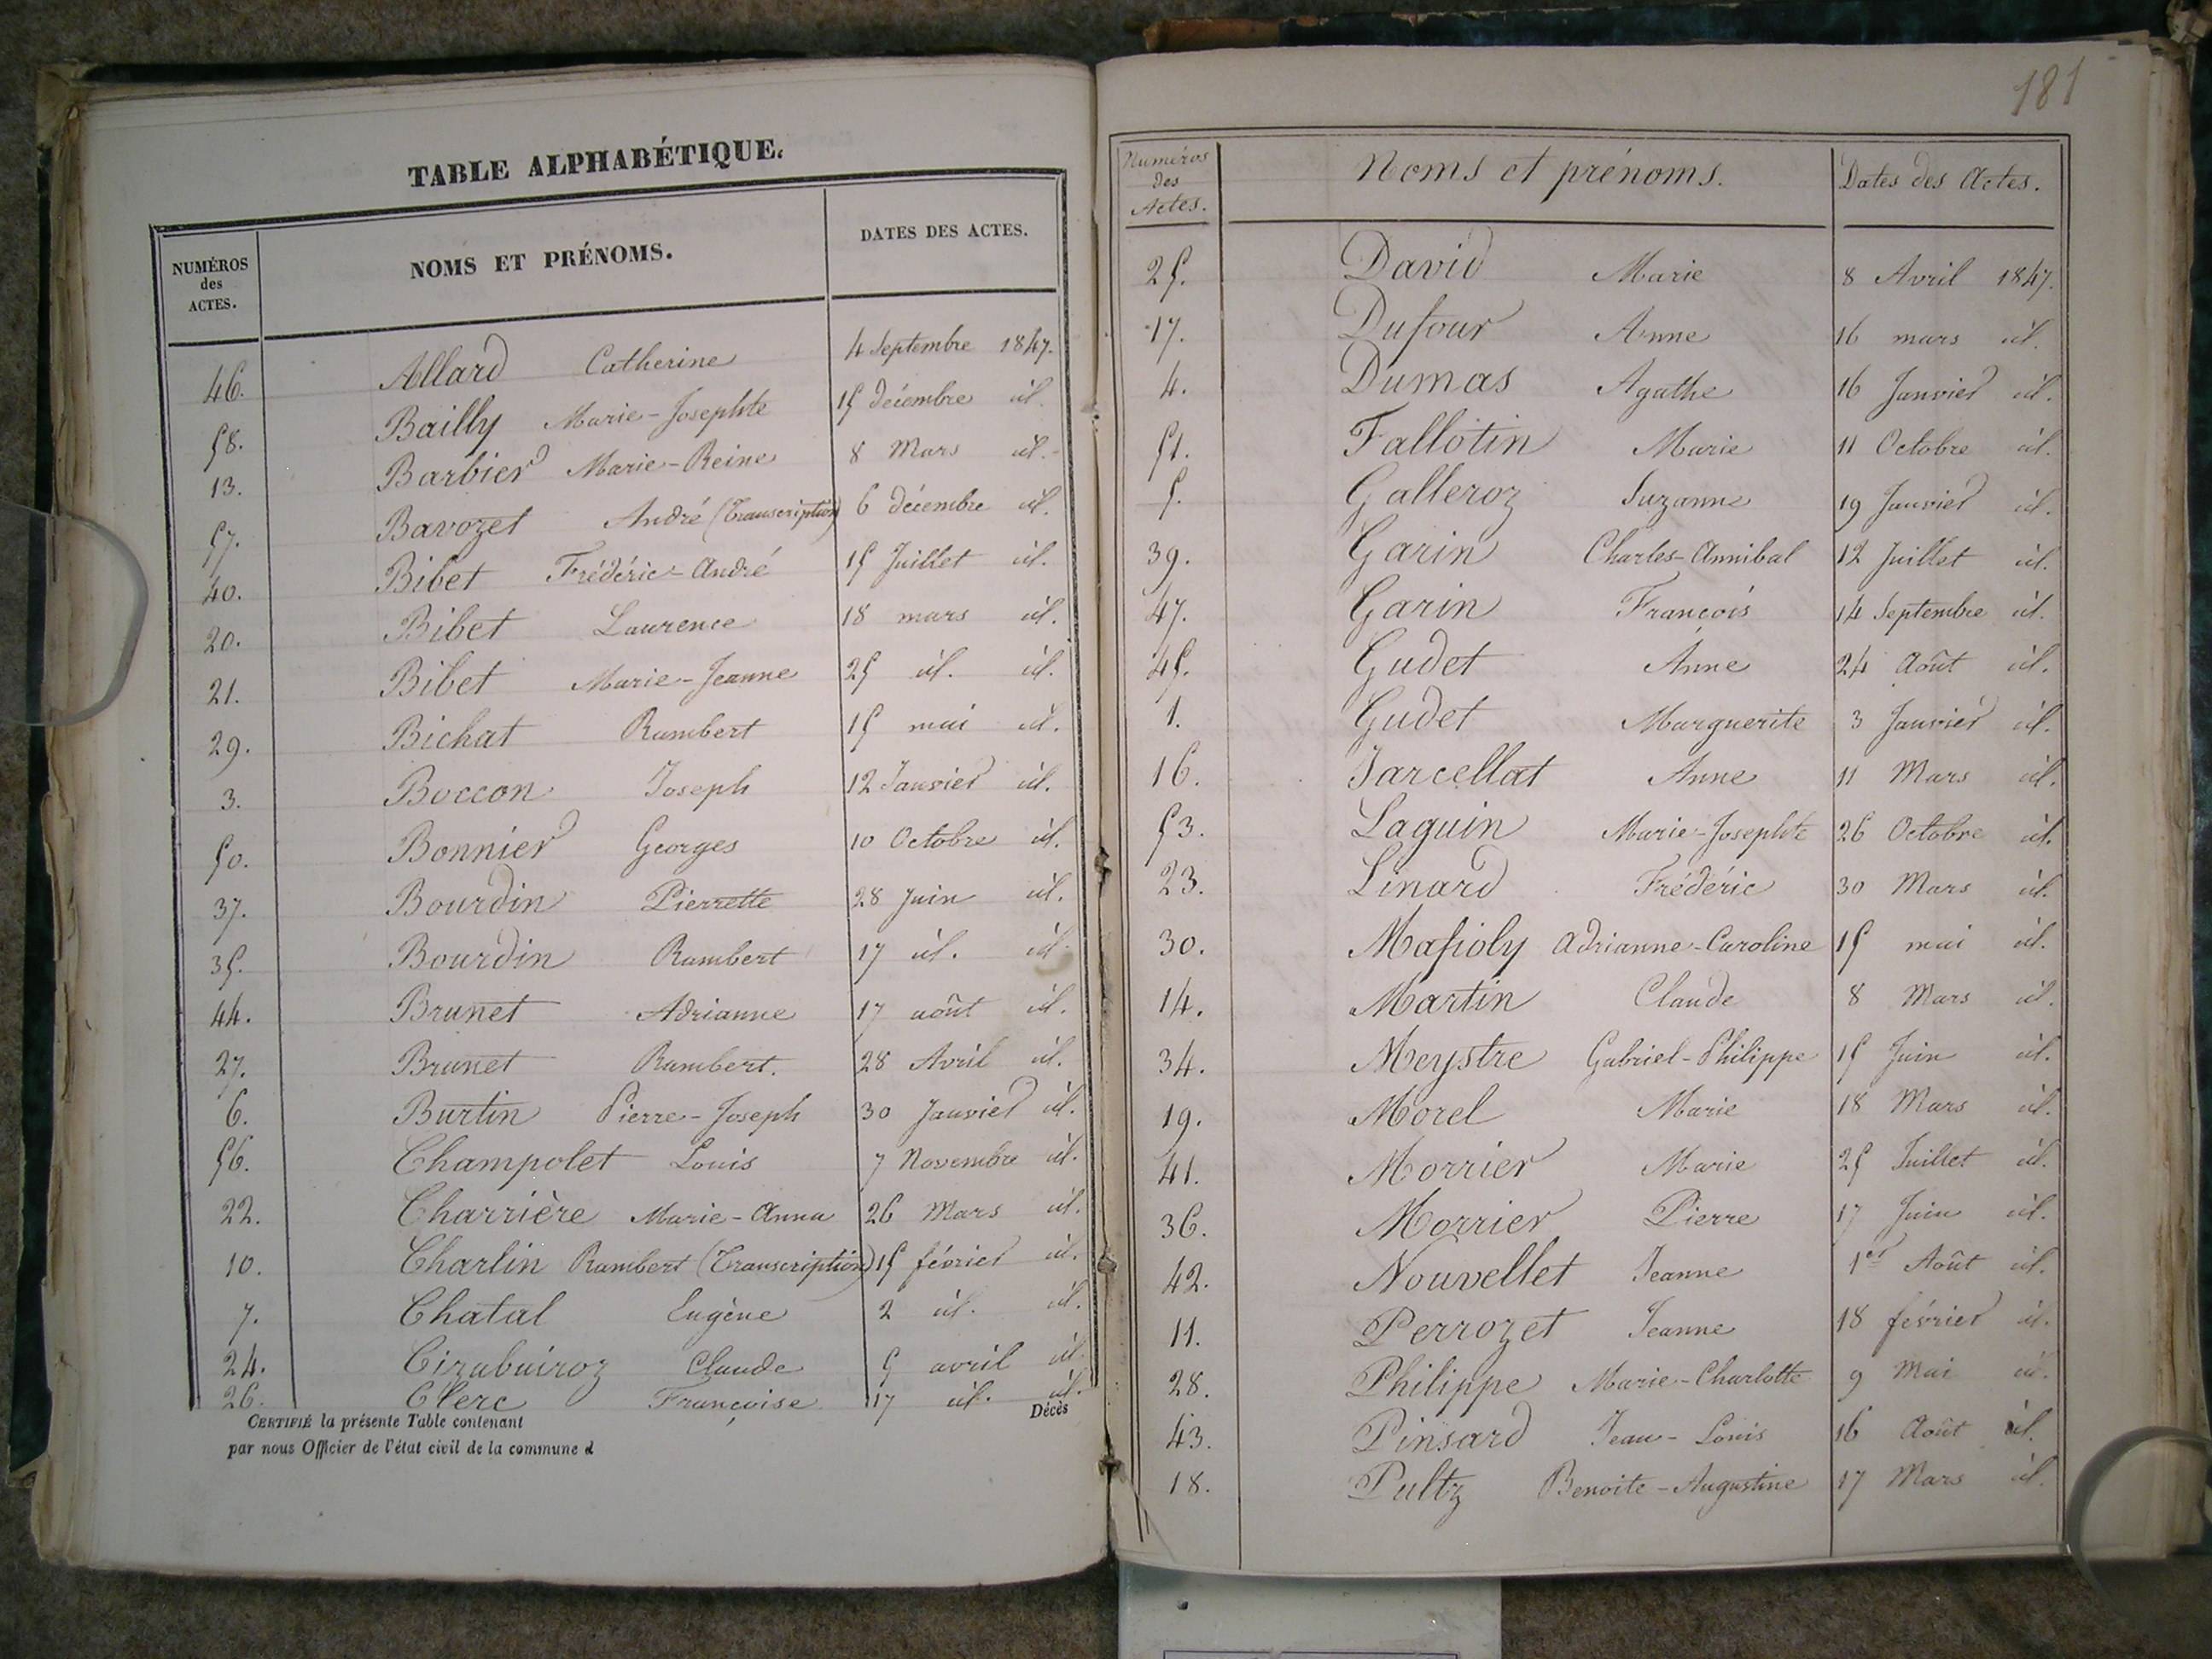 TABLE ALPHABÉTIQUE.
NUMÉROS des ACTES. NOMS ET PRÉNOMS. DATES DES ACTES.
46. Allard Catherine 4 Septembre 1847.
58. Bailly Marie-Josephte 15 décembre id.
13. Barbier Marie-Reine 8 Mars id.
57. Bavozet André (Transcription) 6 décembre id.
40. Bibet Frédéric-André 15 Juillet id.
20. Bibet Laurence 18 mars id.
21. Bibet Marie-Jeanne 25 id. id.
29. Bichat Rambert 15 mai id.
3. Boccon Joseph 12 Janvier id.
50. Bonnier Georges 10 Octobre id.
37. Bourdin Pierrette 28 Juin id.
35. Bourdin Rambert 17 id. id.
44. Brunet Adrianne 17 août id.
27. Brunet Rambert. 28 Avril id.
6. Burtin Pierre-Joseph 30 Janvier id.
56. Champolet Louis 7 Novembre id.
22. Charrière Marie-Anna 26 Mars id.
10. Charlin Rambert (Transcription) 15 février id.
7. Chatal Eugène 2 id. id.
24. Cizabuiroz Claude avril id.
26. Clerc Françoise 17 id. id.
Décès
CERTIFIÉ la présente Table contenant
par nous Officier de l'état civil de la commune d
181
Numéros des Actes. Noms et prénoms. Dates des Actes.
25. David Marie 8 Avril 1847.
17. Dufour Anne 16 mars id.
4. Dumas Agathe 16 Janvier id.
51. Fallotin Marie 11 Octobre id.
5. Galleroz Suzanne 19 Janvier id.
39. Garin Charles-Annibal 12 Juillet id.
47. Garin François 14 Septembre id.
45. Gudet Anne 24 Août id.
1. Gudet Marguerite 3 Janvier id.
16. Jarcellat Anne 11 Mars id.
53. Laguin Marie-Josephte 26 Octobre id.
23. Linard Frédéric 30 Mars id.
30. Massioly Adrianne-Caroline 15 mai id.
14. Martin Claude 8 Mars id.
34. Meystre Gabriel-Philippe 15 Juin id.
19. Morel Marie 18 Mars id.
41. Morrier Marie 25 Juillet id.
36. Morrier Pierre 17 Juin id.
42. Nouvellet Jeanne 1er Août id.
11. Perrozet Jeanne 18 février id.
28. Philippe Marie-Charlotte 9 Mai id.
43. Pinsard Jean-Louis 16 Août id.
18. Pultz Benoite-Augustine 17 Mars id.